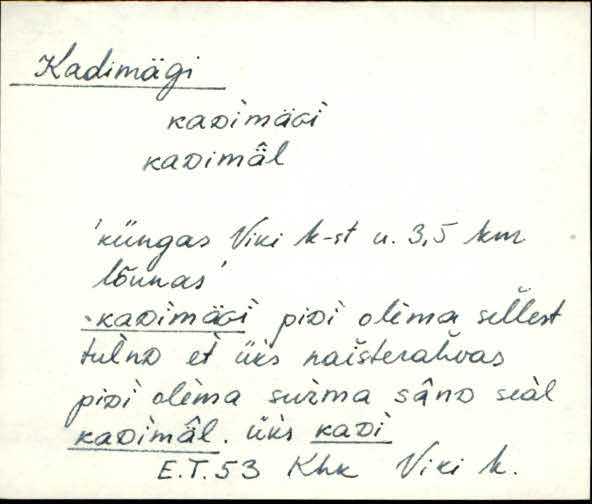 Kadimägi
kaᴅìmäɢì
kaᴅimä̂l
'küngas Viki k-st u. 3,5 km
lõunas'
kaᴅìmäɢì piᴅì olèma sellest
tulnᴅ et üks naišterahvas
piᴅì olèma surma sânᴅ seàl
kaᴅìmâl. üks kaᴅì
E.T.53 Khk Viki k.